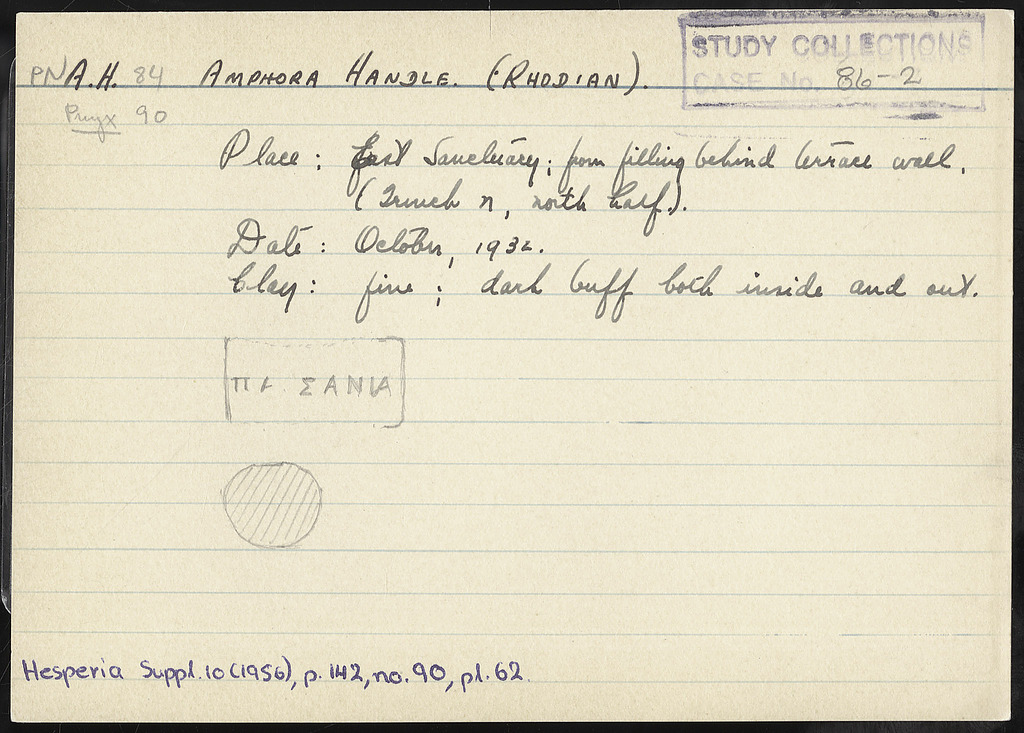 STUDY COLLECTIONS
CASE No. 86-2
PN A.H. 84 AMPHORA HANDLE. (RHODIAN).
Pnyx 90
Place: East Sanctuary; from filling behind terrace wall.
(Trench n, north half.).
Date: October, 1932.
Clay: fine; dark buff both inside and out.
ΠΑ ΣΑΝΙΑ
Hesperia Suppl. 10 (1956), p. 142, no. 90, pl. 62.